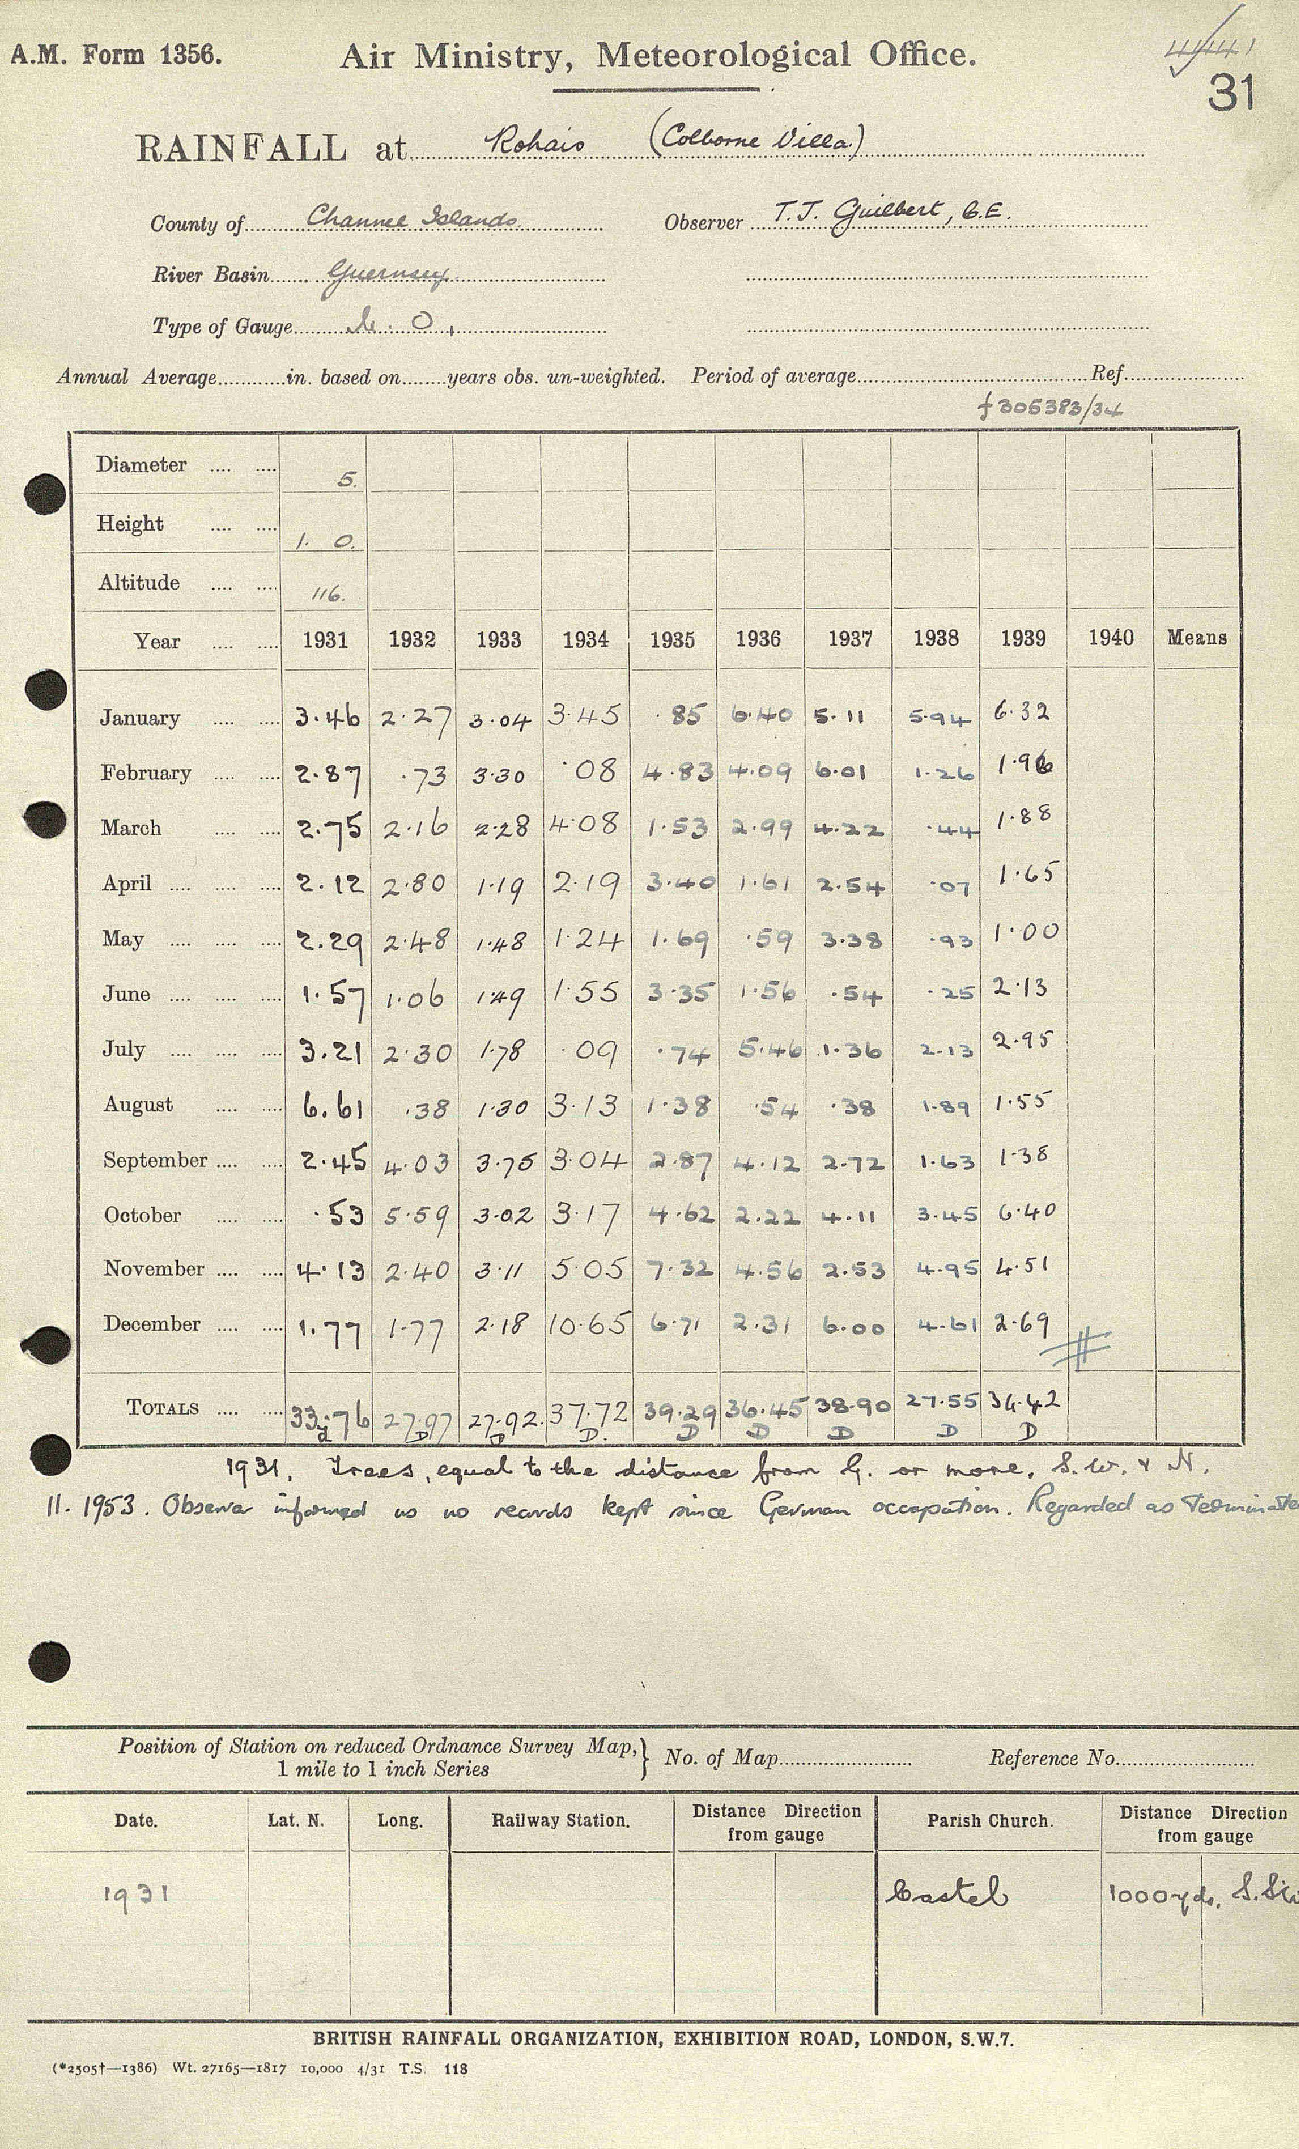 A.M. Form 1356. Air Ministry, Meteorological Office.
31
RAINFALL at Rohais (Colborne Villa)
County of Channel Islands Observer T.J. Guilbert, C.E.
River Basin Guernsey
Type of Gauge M.O.
Annual Average in. based on years obs. un-weighted. Period of average Ref.
f 305383/34
Diameter 5.
Height 1. 0.
Altitude 116.
Year 1931 1932 1933 1934 1935 1936 1937 1938 1939 1940 Means
January 3.46 2.27 3.04 3.45 .85 6.40 5.11 5.94 6.32
February 2.87 .73 3.30 .08 4.83 4.09 6.01 1.26 1.96
March 2.75 2.16 2.28 4.08 1.53 2.99 4.22 .44 1.88
April 2.12 2.80 1.19 2.19 3.40 1.61 2.54 .07 1.65
May 2.29 2.48 1.48 1.24 1.69 .59 3.38 .93 1.00
June 1.57 1.06 1.49 1.55 3.35 1.56 .54 .25 2.13
July 3.21 2.30 1.78 .09 .74 5.46 1.36 2.13 2.95
August 6.61 .38 1.30 3.13 1.38 .54 .38 1.89 1.55
September 2.45 4.03 3.75 3.04 2.87 4.12 2.72 1.63 1.38
October .53 5.59 3.02 3.17 4.62 2.22 4.11 3.45 6.40
November 4.13 2.40 3.11 5.05 7.32 4.56 2.53 4.95 4.51
December 1.77 1.77 2.18 10.65 6.71 2.31 6.00 4.61 2.69
TOTALS 33.76 27.97 27.92 37.72 39.29 36.45 38.90 27.55 34.42
d D D D. D D D D D
1931. Trees, equal to the distance from G. or more, S.W. & N.
11.1953. Observer informed us no records kept since German occupation. Regarded as terminate
Position of Station on reduced Ordnance Survey Map, 1 mile to 1 inch Series } No. of Map Reference No.
Date. Lat. N. Long. Railway Station. Distance Direction from gauge Parish Church. Distance Direction from gauge
1931 Castel 1000 yds. S.SW
BRITISH RAINFALL ORGANIZATION, EXHIBITION ROAD, LONDON, S.W.7.
(*2505†—1386) Wt. 27165—1817 10,000 4/31 T.S. 118